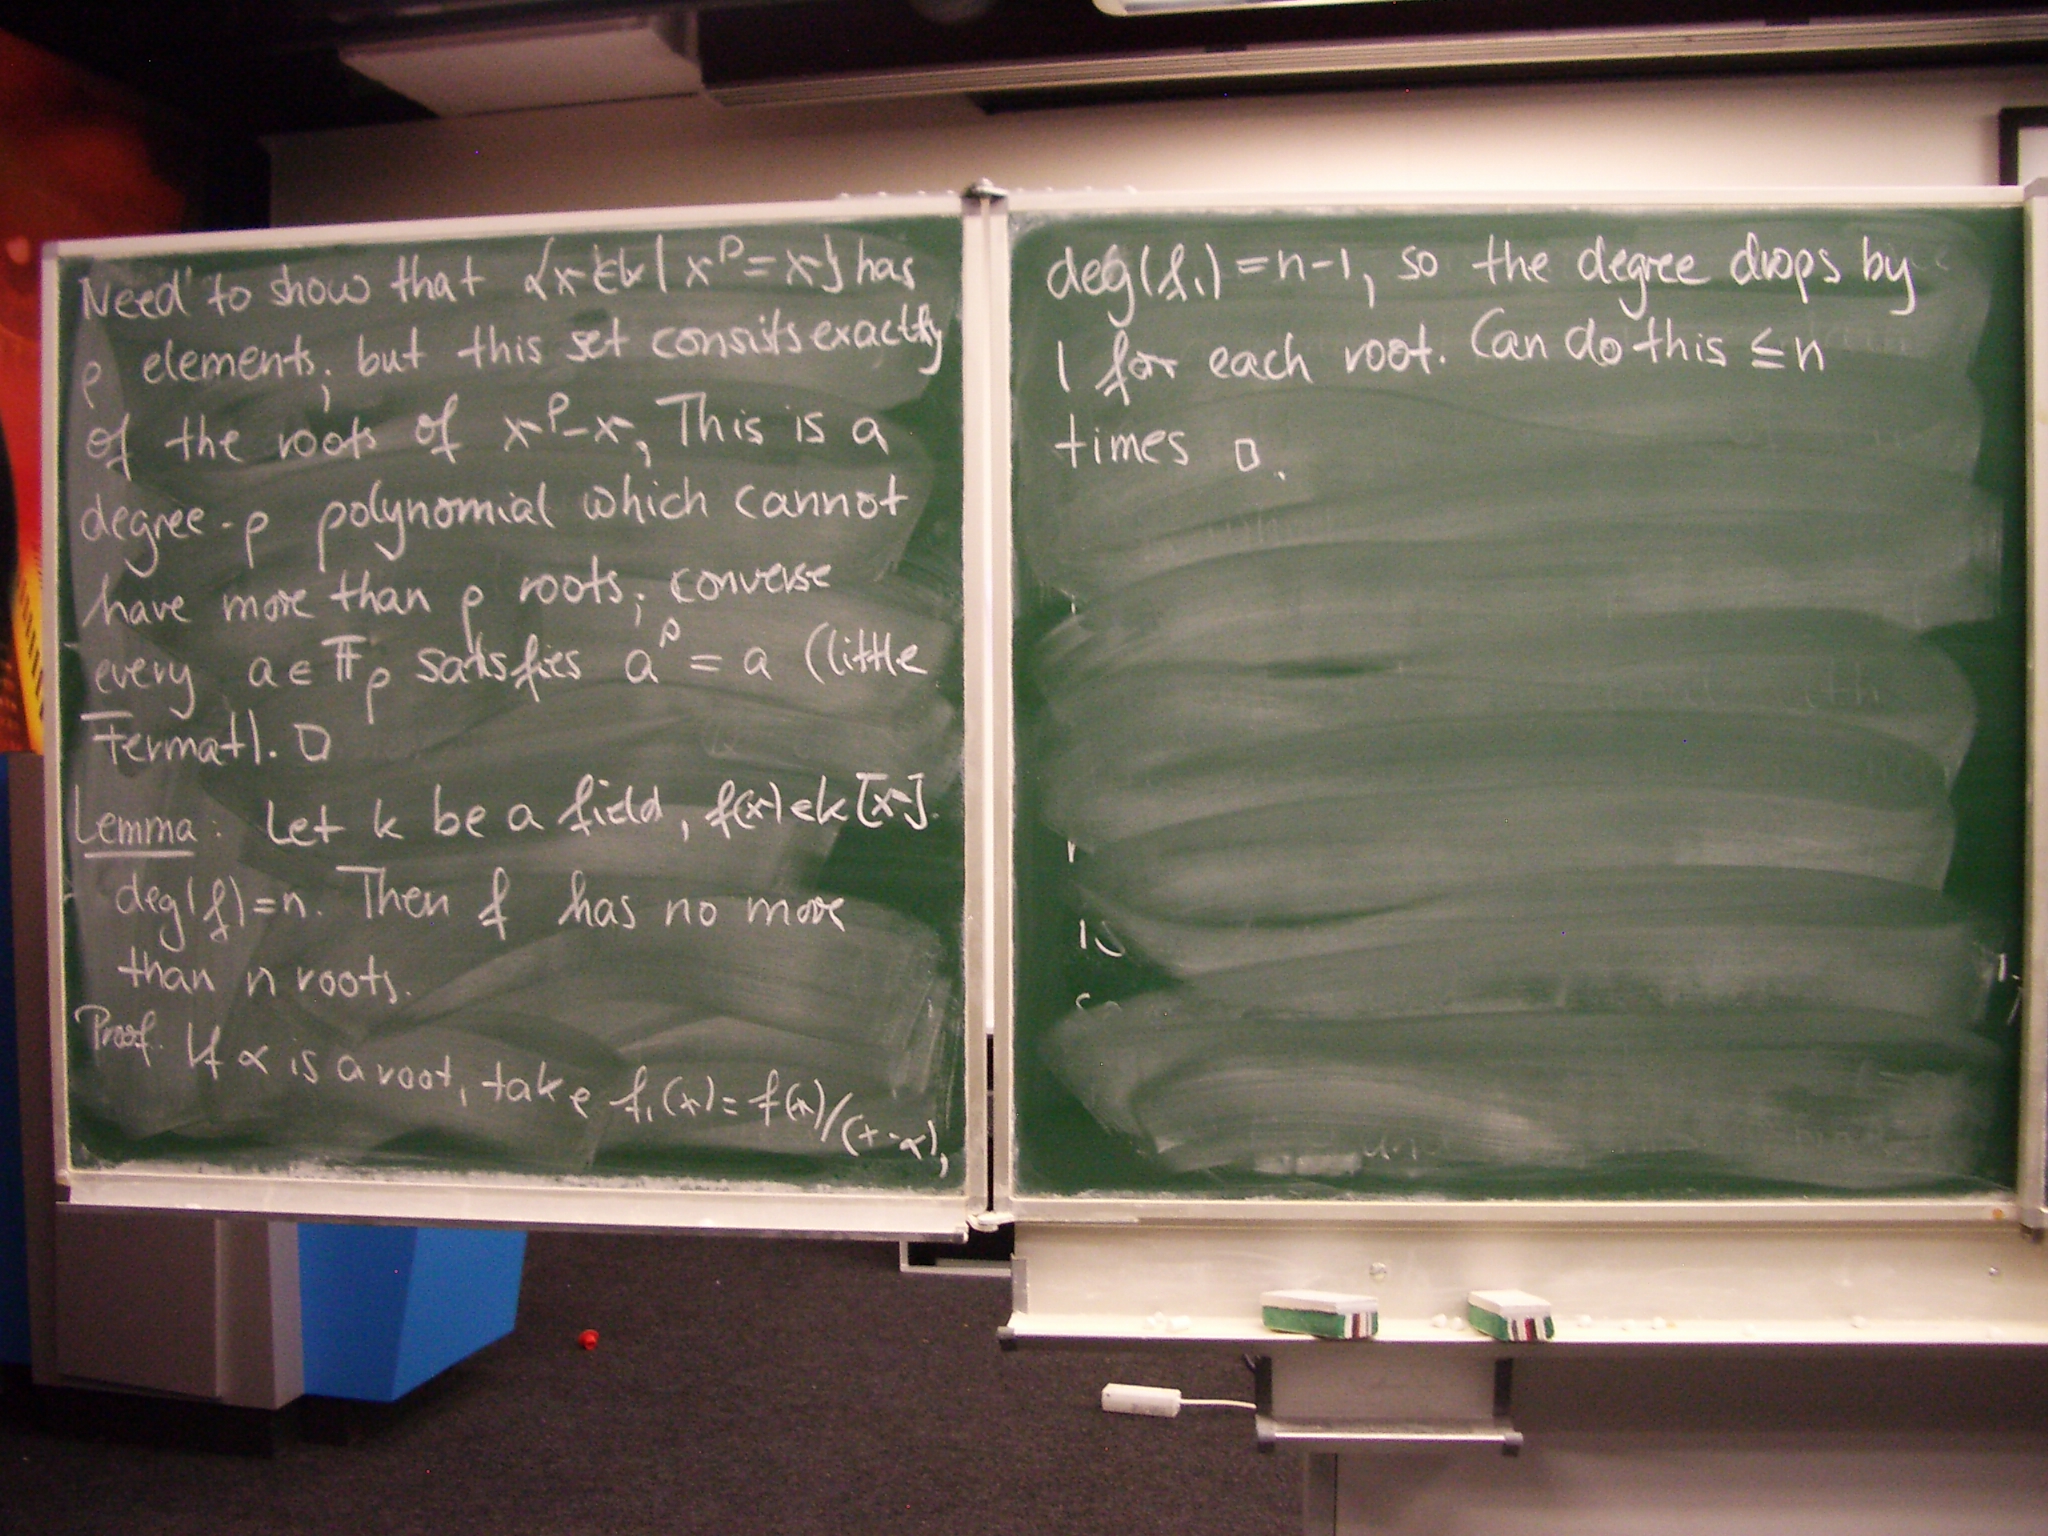 Need to show that {x∈k | x^p = x} has
p elements; but this set consists exactly
of the roots of x^p-x, This is a
degree-p polynomial which cannot
have more than p roots; converse
every a ∈ 𝔽_p satisfies a^p = a (little
Fermat). □
Lemma: Let k be a field, f(x) ∈ k[x].
deg(f)=n. Then f has no more
than n roots.
Proof. If α is a root, take f₁(x) = f(x)/(x-α),
deg(f₁) = n-1, so the degree drops by
1 for each root. Can do this ≤ n
times □.